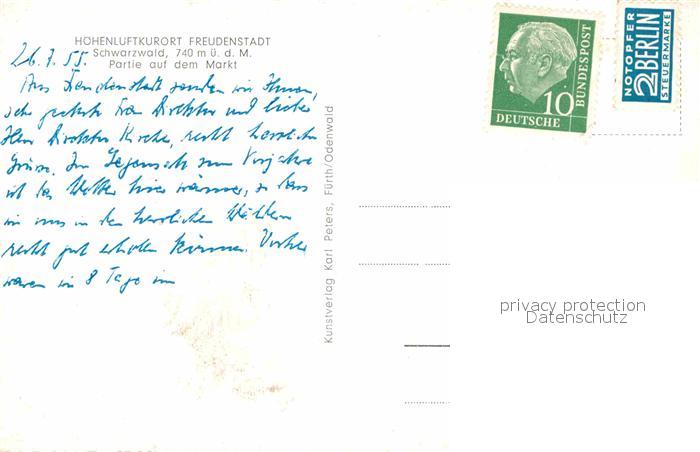 HÖHENLUFTKURORT FREUDENSTADT
Schwarzwald, 740 m ü. d. M.
Partie auf dem Markt
26.7.55.
Aus Freudenstadt senden wir Ihnen,
sehr geehrte Frau Direktor und lieber
Herr Direktor recht herzliche
Grüsse. Im Gegensatz zum Vorjahre
ist das Wetter hier wärmer, so dass
wir uns in den herrlichen Wäldern
recht gut erholen können. Vorher
waren wir 8 Tage im
Kunstverlag Karl Peters, Fürth/Odenwald
10
DEUTSCHE
BUNDESPOST
NOTOPFER
2 BERLIN
STEUERMARKE
privacy protection
Datenschutz